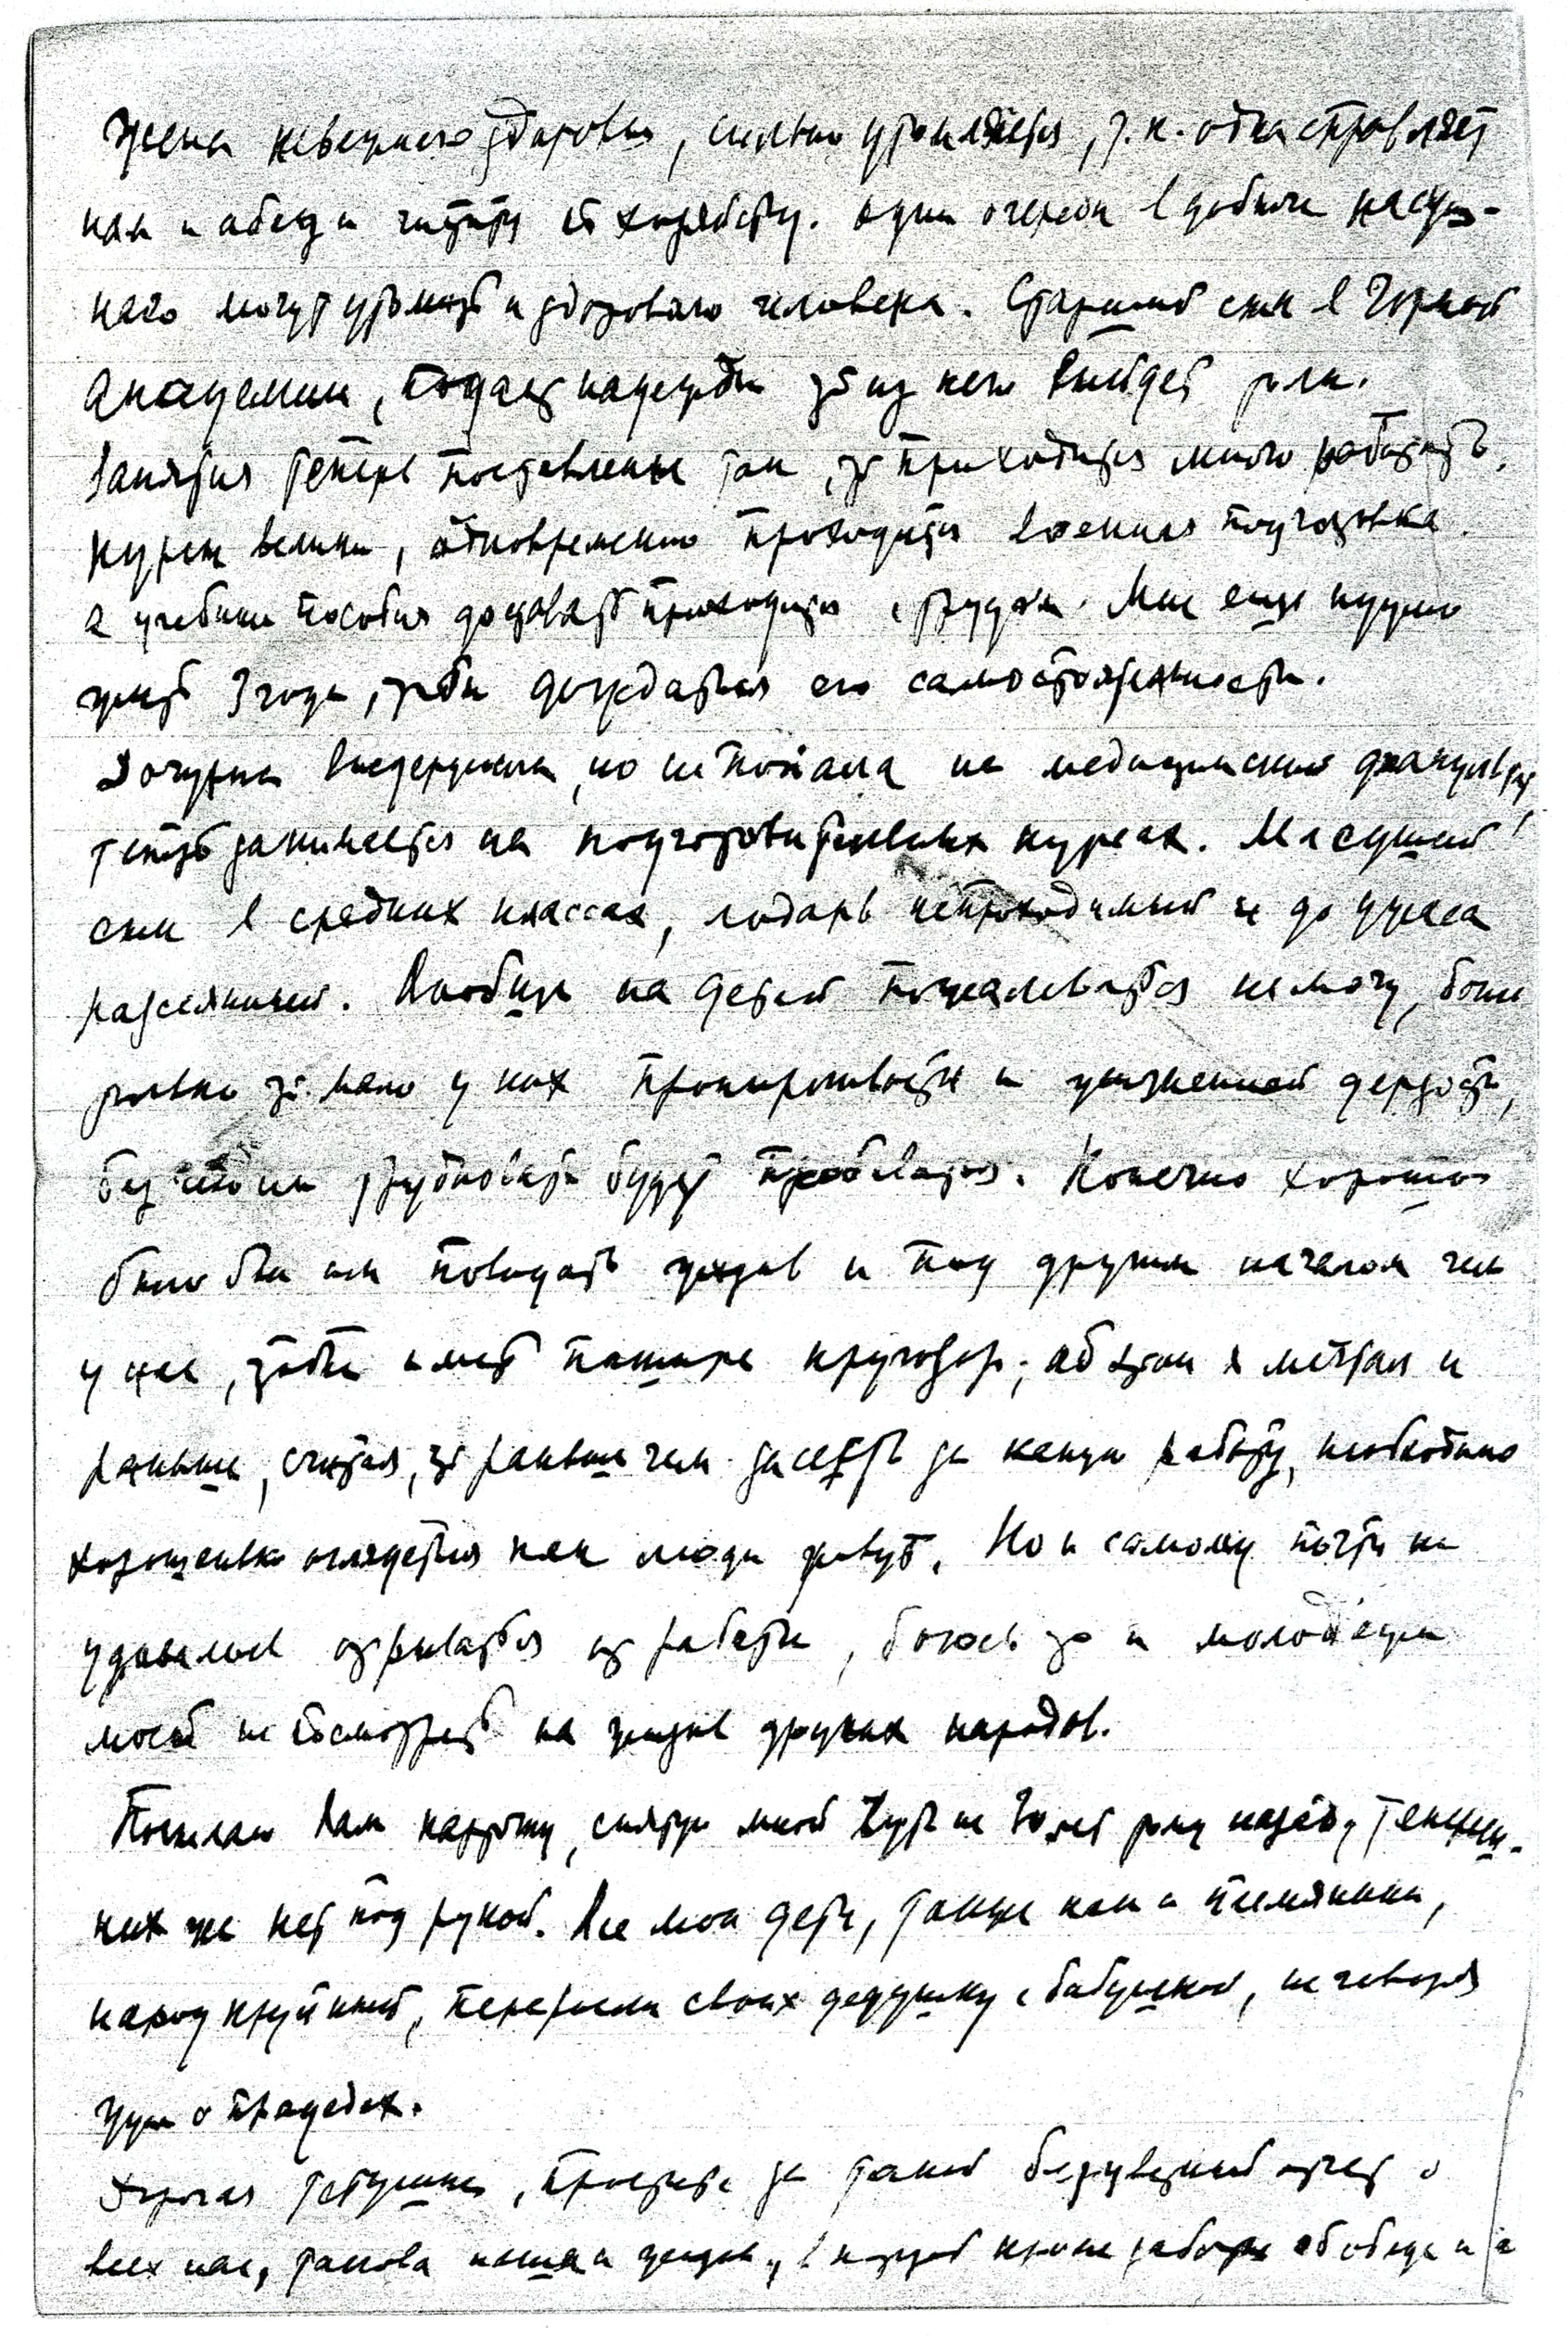 Жена неважного здоровья, сильно утомляется, т.к. одна справляет
нам и обед и чистку по хозяйству. Одни очереди в добыче насущ-
ного могут утомить и здорового человека. Старший сын в Горной
Академии, подает надежды что из него выйдет толк.
Занятия теперь поставлены так, что приходится много работать,
курсы велики, одновременно проходится военная подготовка.
а учебные пособия доставать приходится с трудом. Мне еще нужно
жить 3 года, чтобы дождаться его самостоятельности.
Дочурка выдержала, но не попала на медицинский факультет
теперь занимается на подготовительных курсах. Младший
сын в средних классах, лодарь непроходимый и до ужаса
рассеянный. Вообще на детей пожаловаться не могу, боюсь
только что мало у них пронырливости и жизненной дерзости,
без чего им трудновато будет пробиваться. Конечно хорошо
было бы им повидать жизнь и под другим началом чем
у нас, чтобы иметь пошире кругозор; об этом я мечтал и
раньше, считая, что раньше чем засесть за какую работу, необходимо
хорошенько оглядеться как люди живут. Но и самому почти не
удавалось отрываться от работы, боюсь что и молодежи
моей не посмотреть на жизнь других народов.
Посылаю Вам карточку, снятую мной чуть не 20 лет тому назад, теперь-
них же нет под рукой. Все мои дети, также как и племянники,
народ крупный, переросли своих дедушку с бабушкой, не говоря
уж о прадедах.
Дорогая тетушка, простите за такой безрадостный отчет о
всех нас, такова наша и жизнь, в которой кроме забот об обеде и о